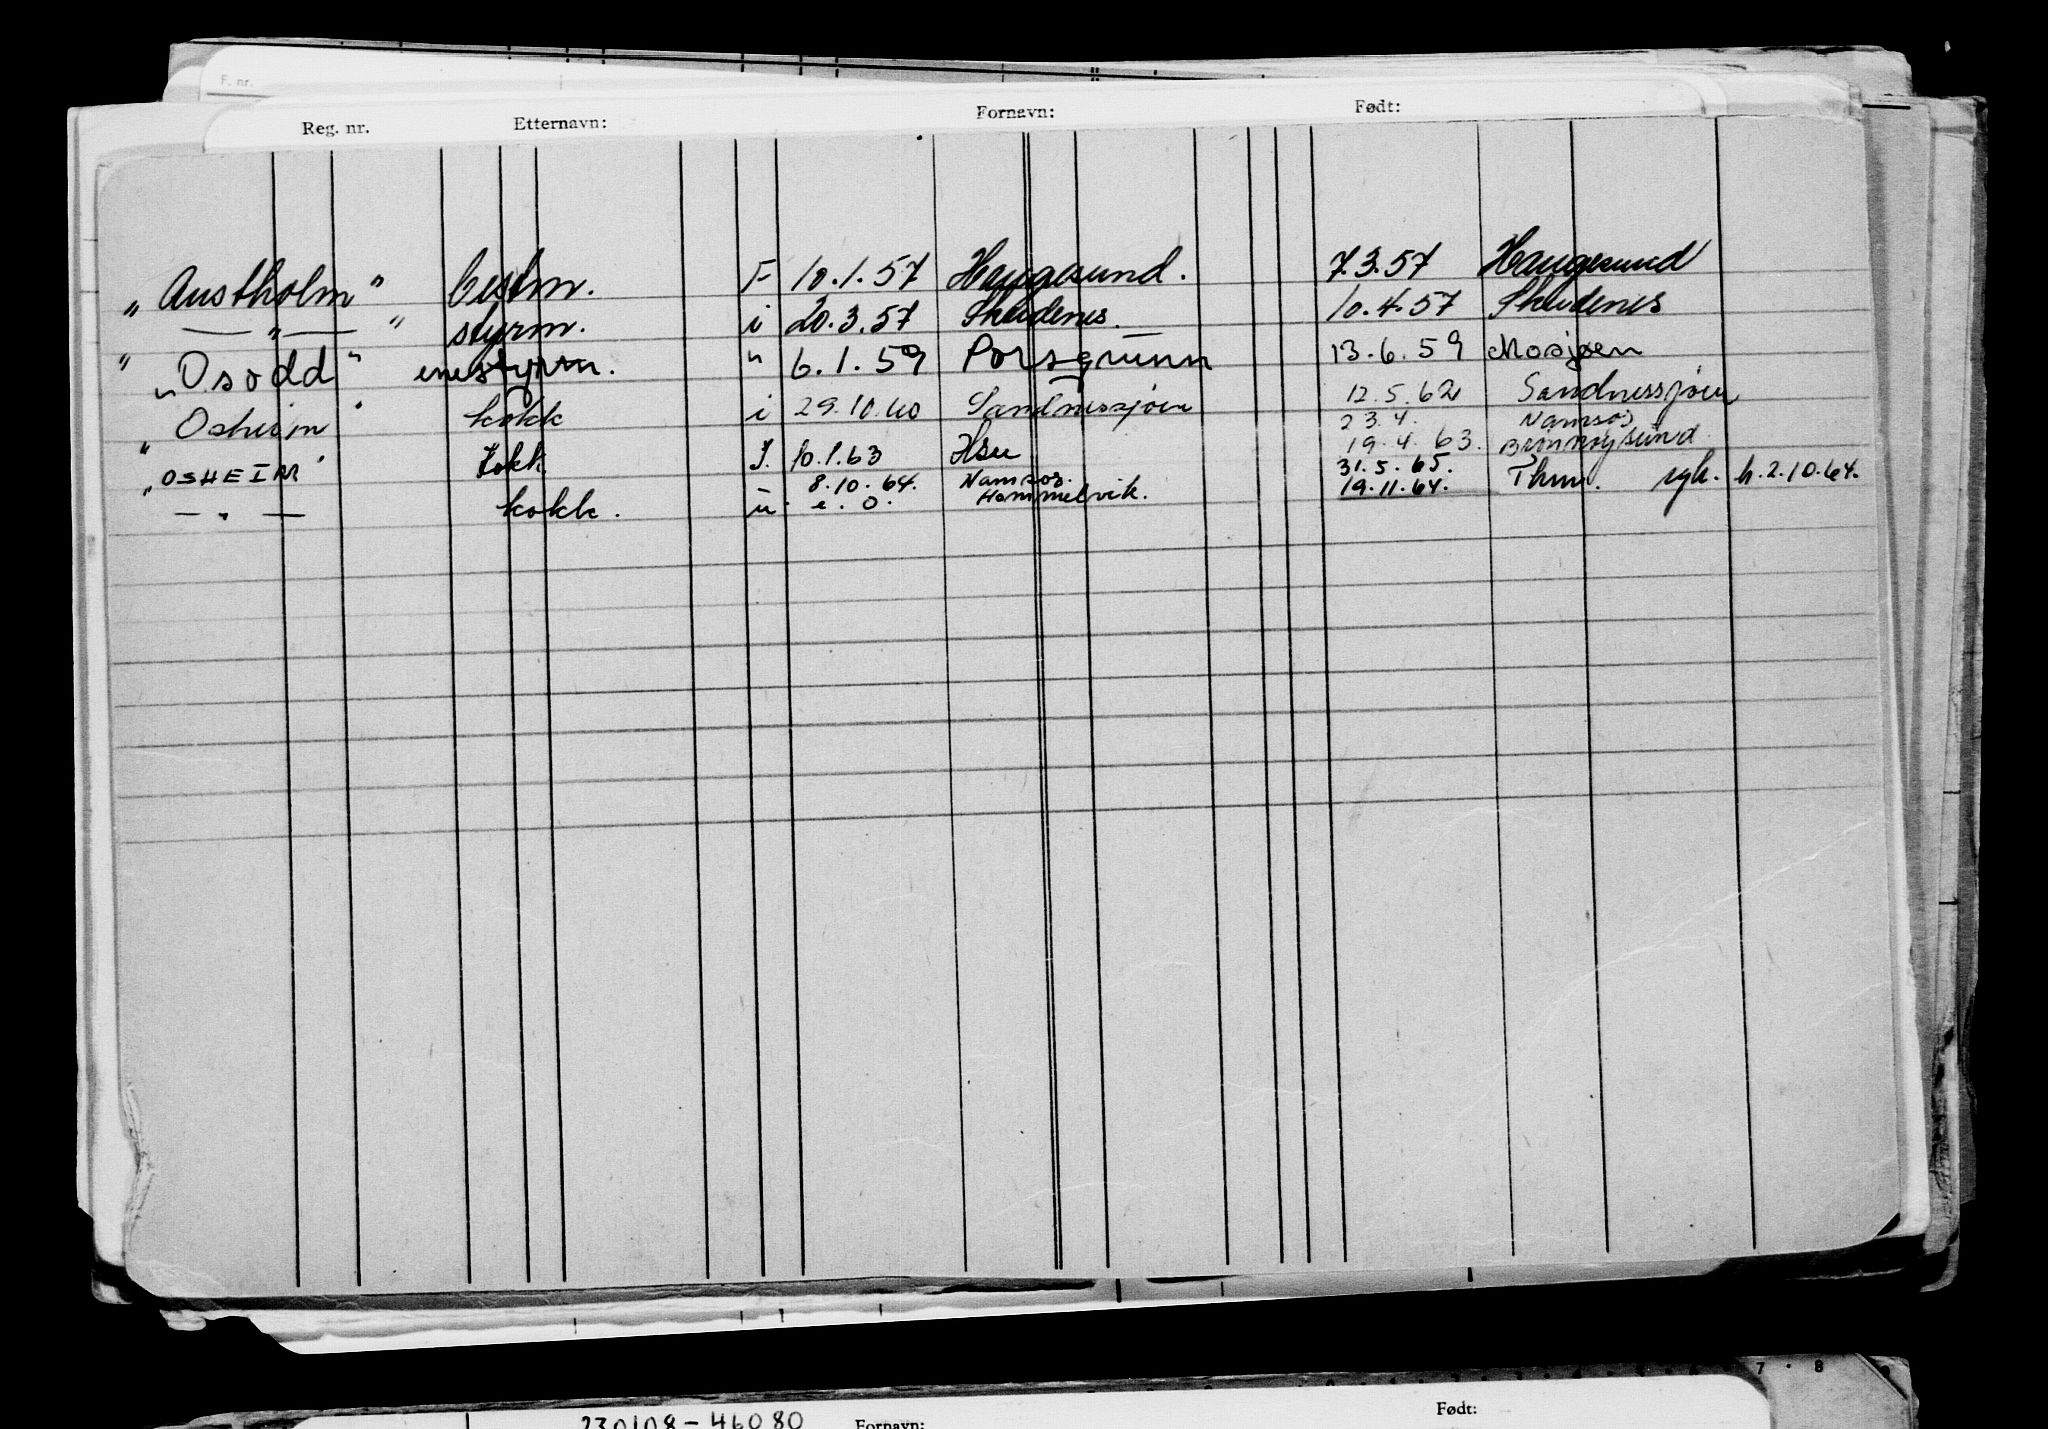 F. nr.
Reg. nr. Etternavn: Fornavn: Født:
„Austholm" bestm. F 10.1.57 Haugesund. 7.3.57 Haugesund
— „ — " styrm. i 20.3.57 Skudenes. 10.4.57 Skudenes
" „Osodd" enestyrm. " 6.1.59 Porsgrunn 13.6.59 Mosjøen
Osheim" kokk i 29.10.60 Sandnessjøen 12.5.62 Sandnessjøen
23.4. Namsos
„OSHEIM" kokk J. 10.1.63 Hsu 19.4.63. Brønnøysund
8.10.64. Namsos. 31.5.65.
— „ — kokk. u. e.o. Hommelvik. 19.11.64. Thm. syk. h. 2.10.64.
7 8
230108-46080 Fornavn: Født: